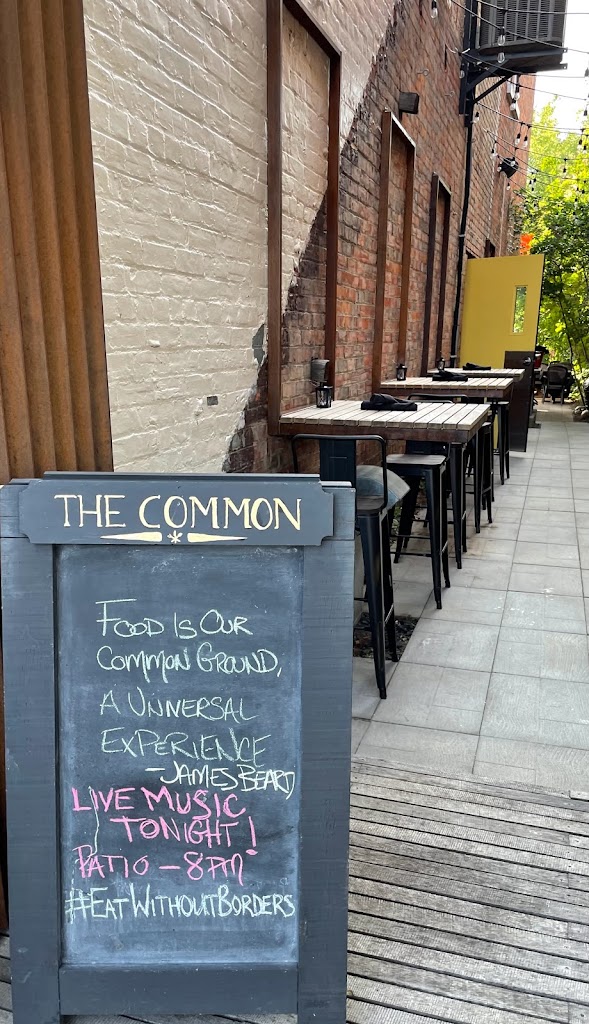 THE COMMON
FOOD IS OUR
COMMON GROUND,
A UNIVERSAL
EXPERIENCE
-JAMES BEARD
LIVE MUSIC
TONIGHT!
PATIO - 8PM
#EATWITHOUTBORDERS